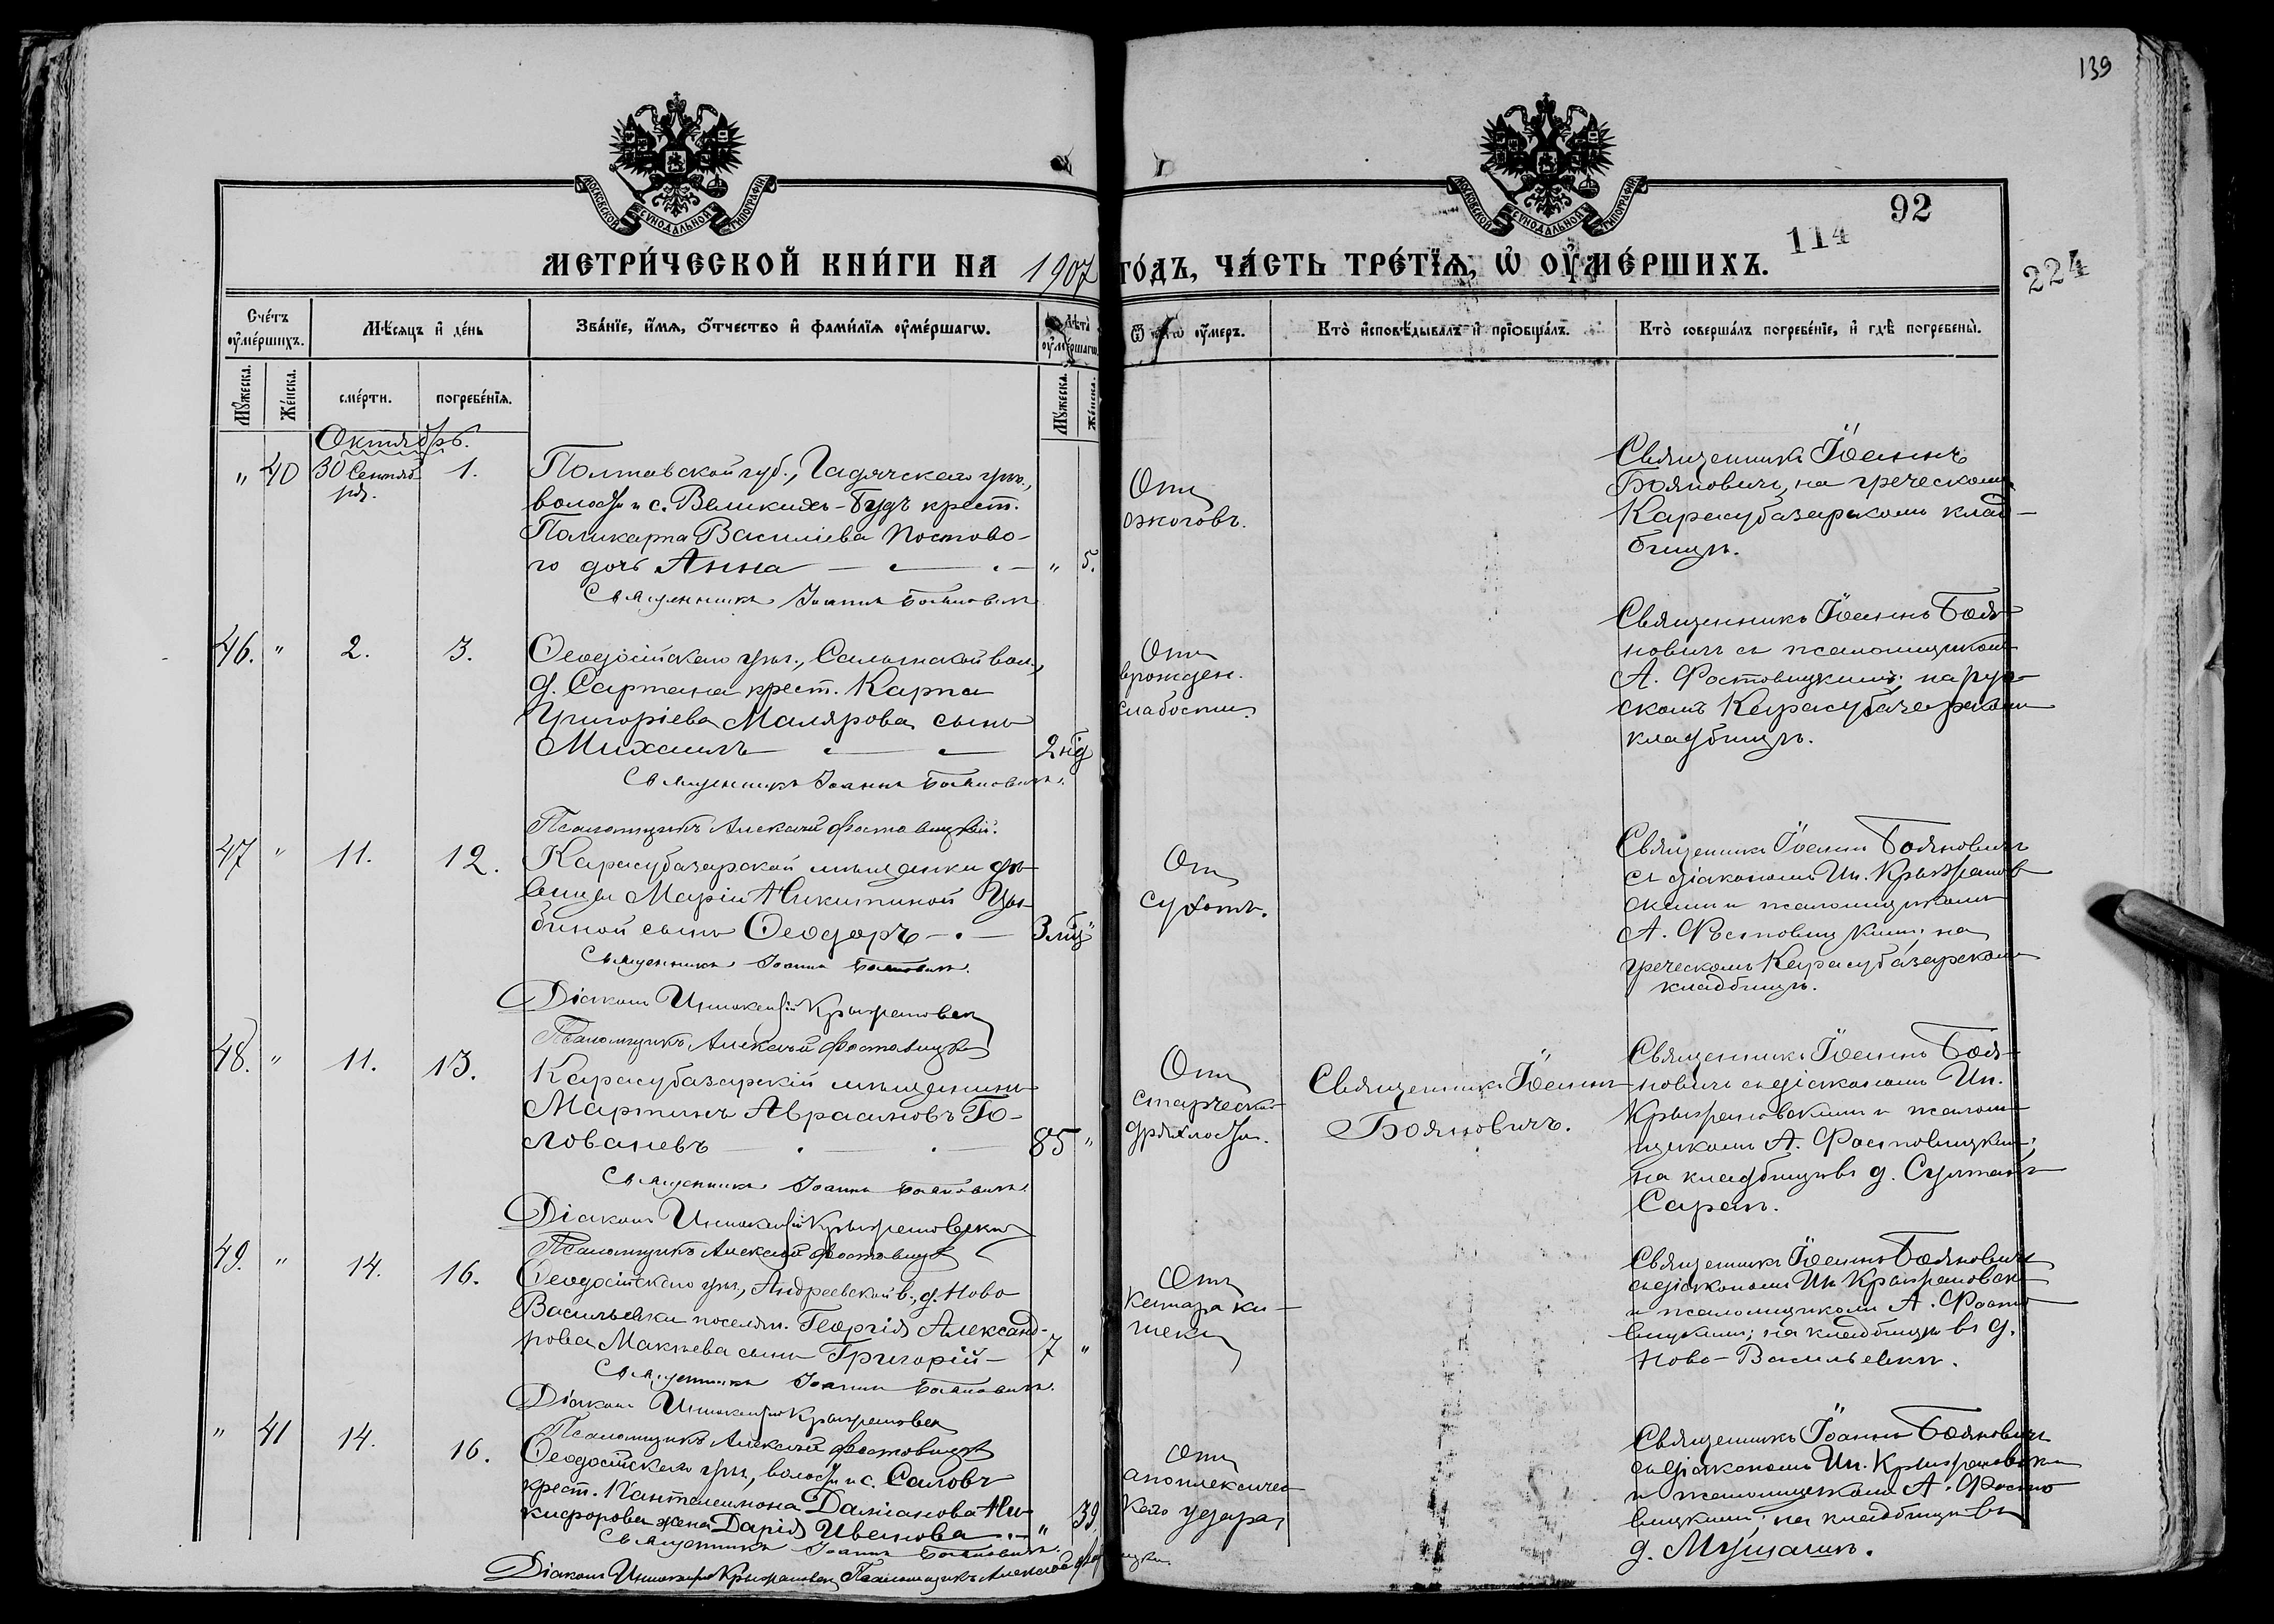 139
МОСКОВСКОЙ СУНОДАЛЬНОЙ ТИПОГРАФІИ
МОСКОВСКОЙ СУНОДАЛЬНОЙ ТИПОГРАФІИ
92
114
224
МЕТРИ́ЧЕСКОЙ КНИ́ГИ НА 1907 ГО́ДЪ, ЧА́СТЬ ТРЕ́ТЇѦ, Ѡ҆ ОУ҆МЕ́РШИХЪ.
Счéтъ оу҆мéршихъ.
Мѣ́сѧцъ и҆ дéнь
Звáнїе, и҆́мѧ, ѻ҆́тчество и҆ фамѝлїѧ оу҆мéршагѡ.
Лѣ́та оу҆мéршагѡ.
Ѿ чегѡ̀ оу҆́меръ.
Ктò и҆сповѣ́дывалъ и҆ прїѡбщáлъ.
Ктò совершáлъ погребéнїе, и҆ гдѣ̀ погребены̀.
Мꙋ́жеска.
Жéнска.
смéрти.
погребéнїѧ.
Мꙋ́жеска.
Жéнска.
Октябрь.
" 40 30 Сентяб-
ря.
1.
Полтавской губ., Гадячскаго уѣз.,
волости и с. Великихъ-Будъ крест.
Поликарпа Василіева Постово-
го дочь Анна " 5.
Священникъ Іоаннъ Бояновичъ
Отъ
ожоговъ.
Священникъ Іоаннъ
Бояновичъ, на греческомъ
Карасубазарскомъ клад-
бищѣ.
46. " 2. 3.
Ѳеодосійскаго уѣз., Салынской вол.,
д. Сартана крест. Карпа
Григоріева Малярова сынъ
Михаилъ 2 нд
Священникъ Іоаннъ Бояновичъ.
Псаломщикъ Алексій Фостовицкій.
Отъ
врожден.
слабости.
Священникъ Іоаннъ Боя-
новичъ съ псаломщикомъ
А. Фостовицкимъ; на рус-
скомъ Карасубазарскомъ
кладбищѣ.
47 " 11. 12.
Карасубазарской мѣщанки дѣ-
вицы Маріи Никитиной Цы-
биной сынъ Ѳеодоръ 3 мц "
Священникъ Іоаннъ Бояновичъ.
Діаконъ Иннокентій Крыжановскій
Псаломщикъ Алексій Фостовицкій
Отъ
сухотъ.
Священникъ Іоаннъ Бояновичъ
съ діакономъ Ин. Крыжанов-
скимъ и псаломщикомъ
А. Фостовицкимъ; на
греческомъ Карасубазарскомъ
кладбищѣ.
48. " 11. 13.
Карасубазарскій мѣщанинъ
Мартинъ Авраамовъ Го-
лованевъ 85 "
Священникъ Іоаннъ Бояновичъ.
Діаконъ Иннокентій Крыжановскій
Псаломщикъ Алексій Фостовицкій
Отъ
старческой
дряхлости.
Священникъ Іоаннъ
Бояновичъ.
Священникъ Іоаннъ Боя-
новичъ съ діакономъ Ин.
Крыжановскимъ и псалом-
щикомъ А. Фостовицкимъ;
на кладбищѣ въ д. Султанъ
Сарай.
49. " 14. 16.
Ѳеодосійскаго уѣз., Андреевской в., д. Ново
Васильевки поселян. Георгія Александ-
рова Макѣева сынъ Григорій 7 "
Священникъ Іоаннъ Бояновичъ.
Діаконъ Иннокентій Крыжановскій
Псаломщикъ Алексій Фостовицкій
Отъ
катара ки-
шекъ
Священникъ Іоаннъ Бояновичъ
съ діакономъ Ин. Крыжановскимъ
и псаломщикомъ А. Фосто-
вицкимъ; на кладбищѣ въ д.
Ново-Васильевкѣ.
" 41 14. 16.
Ѳеодосійскаго уѣз., волости и с. Саловъ
крест. Пантелеимона Даміанова Ни-
кифорова жена Дарія Иванова " 39.
Священникъ Іоаннъ Бояновичъ.
Діаконъ Иннокентій Крыжановскій Псаломщикъ Алексій Фостовицкій
Отъ
апоплексичес-
каго удара
Священникъ Іоаннъ Бояновичъ
съ діакономъ Ин. Крыжановскимъ
и псаломщикомъ А. Фосто-
вицкимъ; на кладбищѣ въ
д. Мушашъ.